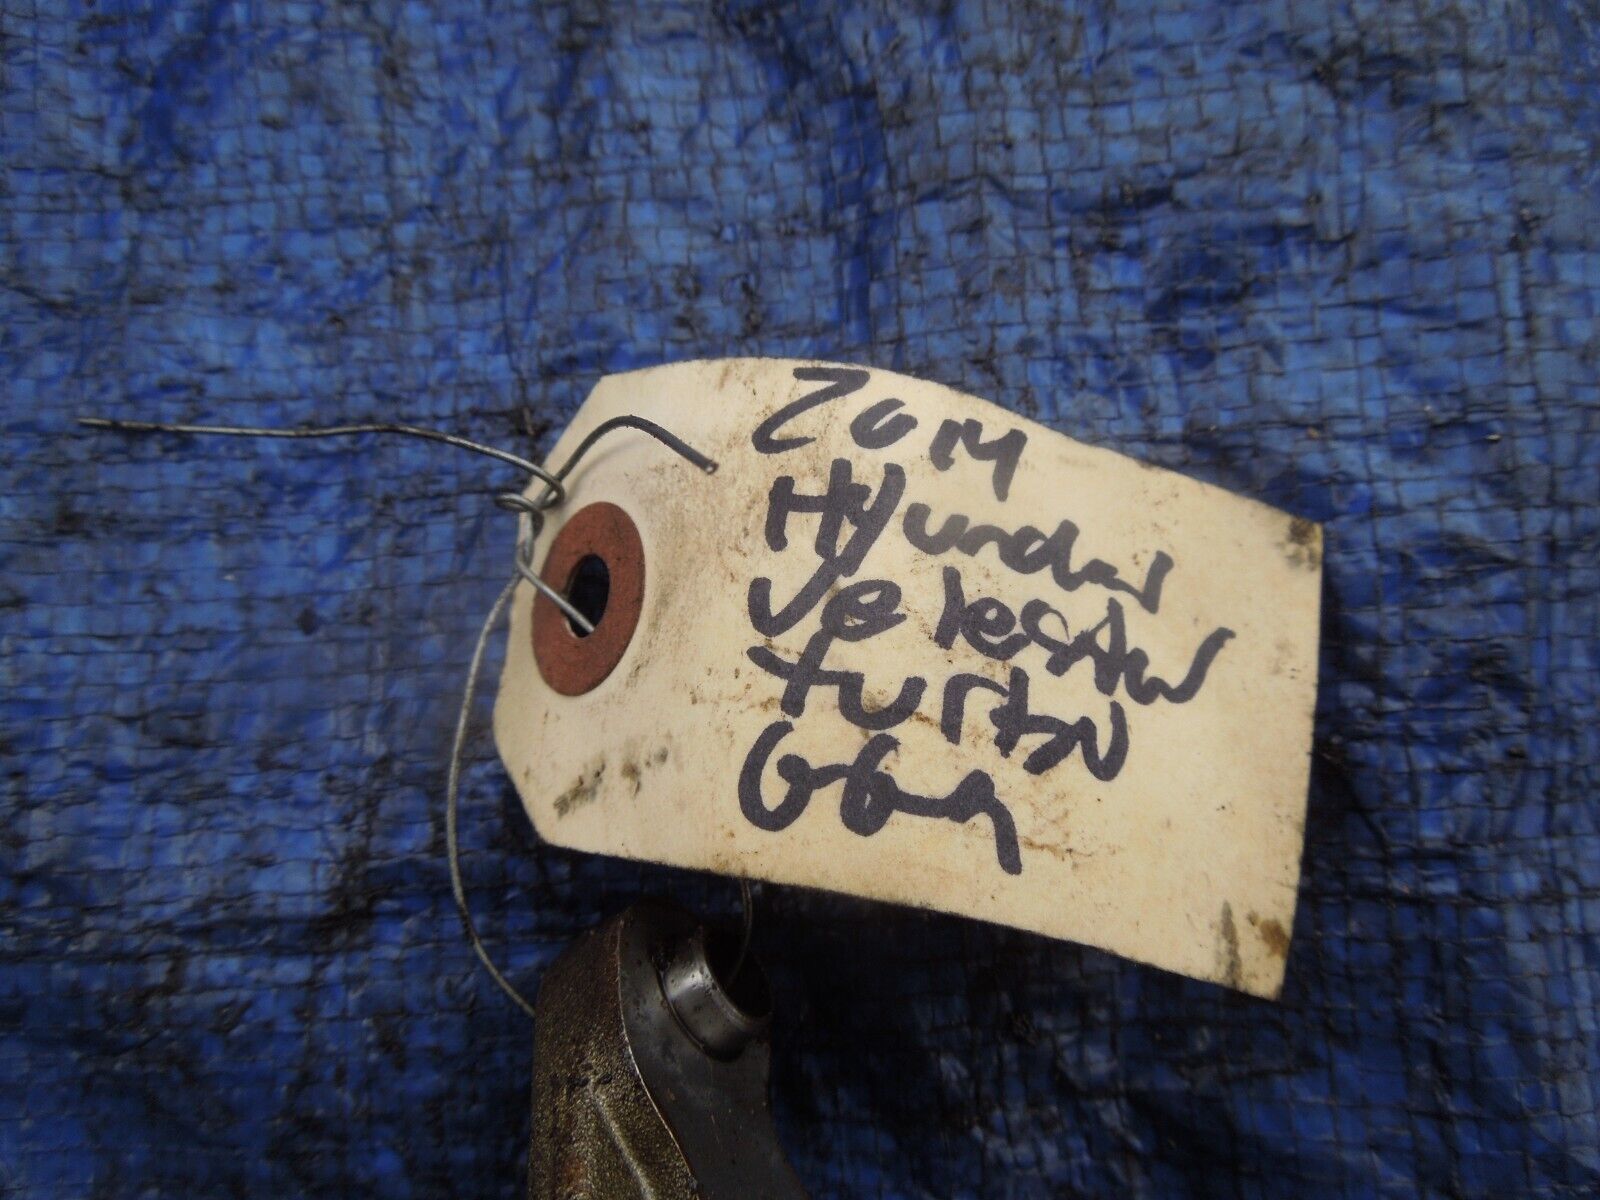 2014
Hyundai
Veloster
turbo